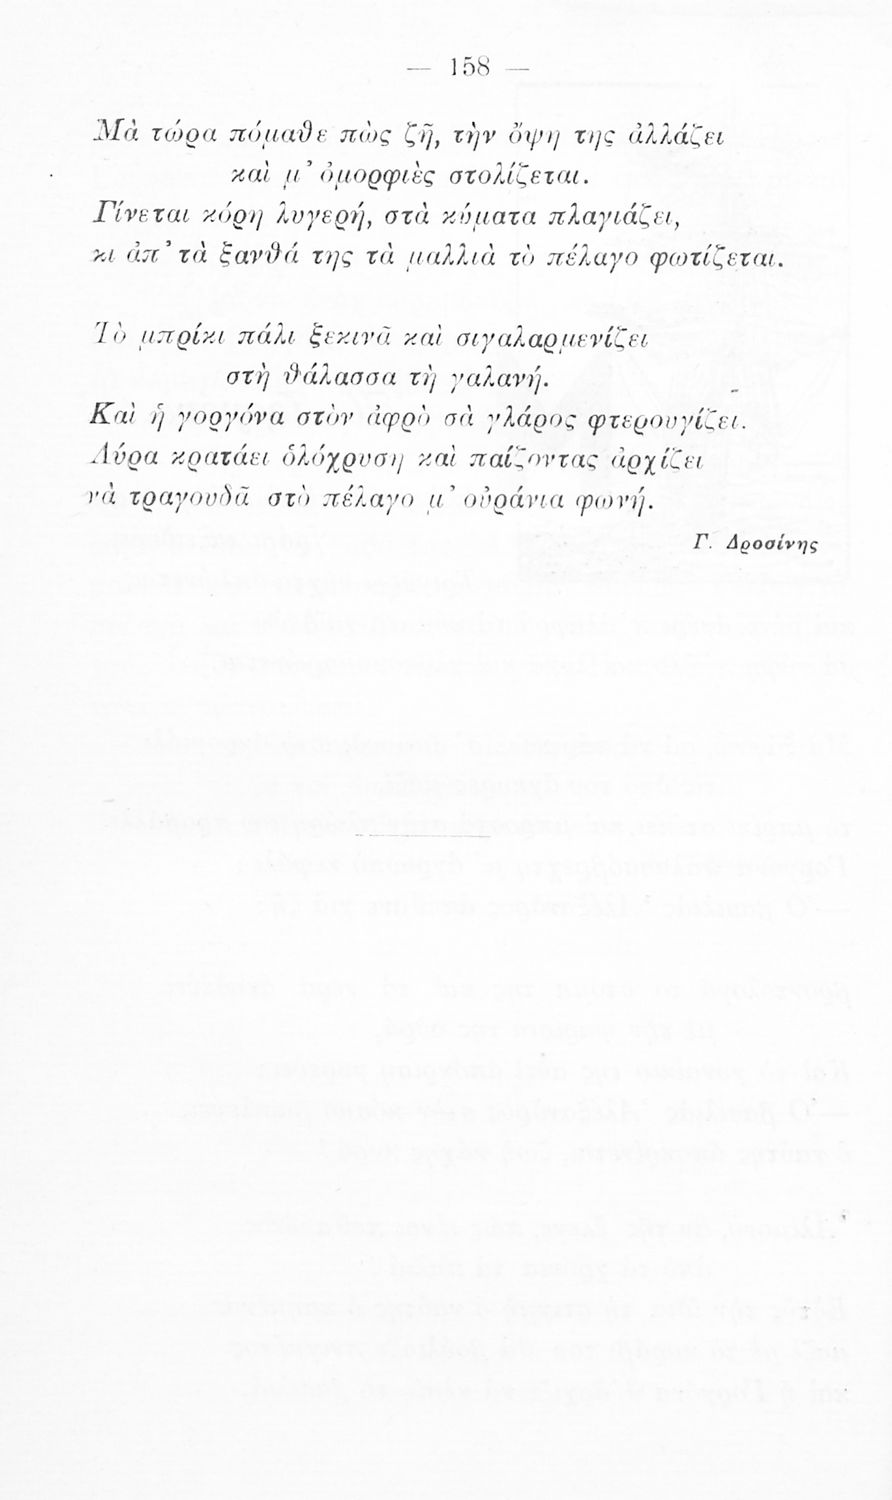 — 158 —
Μὰ τώρα πόμαθε πὼς ζῆ, τὴν ὄψη της ἀλλάζει
καὶ μ᾿ ὀμορφιὲς στολίζεται.
Γίνεται κόρη λυγερή, στὰ κύματα πλαγιάζει,
κι ἀπ᾿ τὰ ξανθά της τὰ μαλλιὰ τὸ πέλαγο φωτίζεται.
Τὸ μπρίκι πάλι ξεκινᾶ καὶ σιγαλαρμενίζει
στὴ θάλασσα τὴ γαλανή.
Καὶ ἡ γοργόνα στὸν ἀφρὸ σὰ γλάρος φτερουγίζει.
Λύρα κρατάει ὁλόχρυση καὶ παίζοντας ἀρχίζει
νὰ τραγουδᾶ στὸ πέλαγο μ᾿ οὐράνια φωνή.
Γ. Δροσίνης